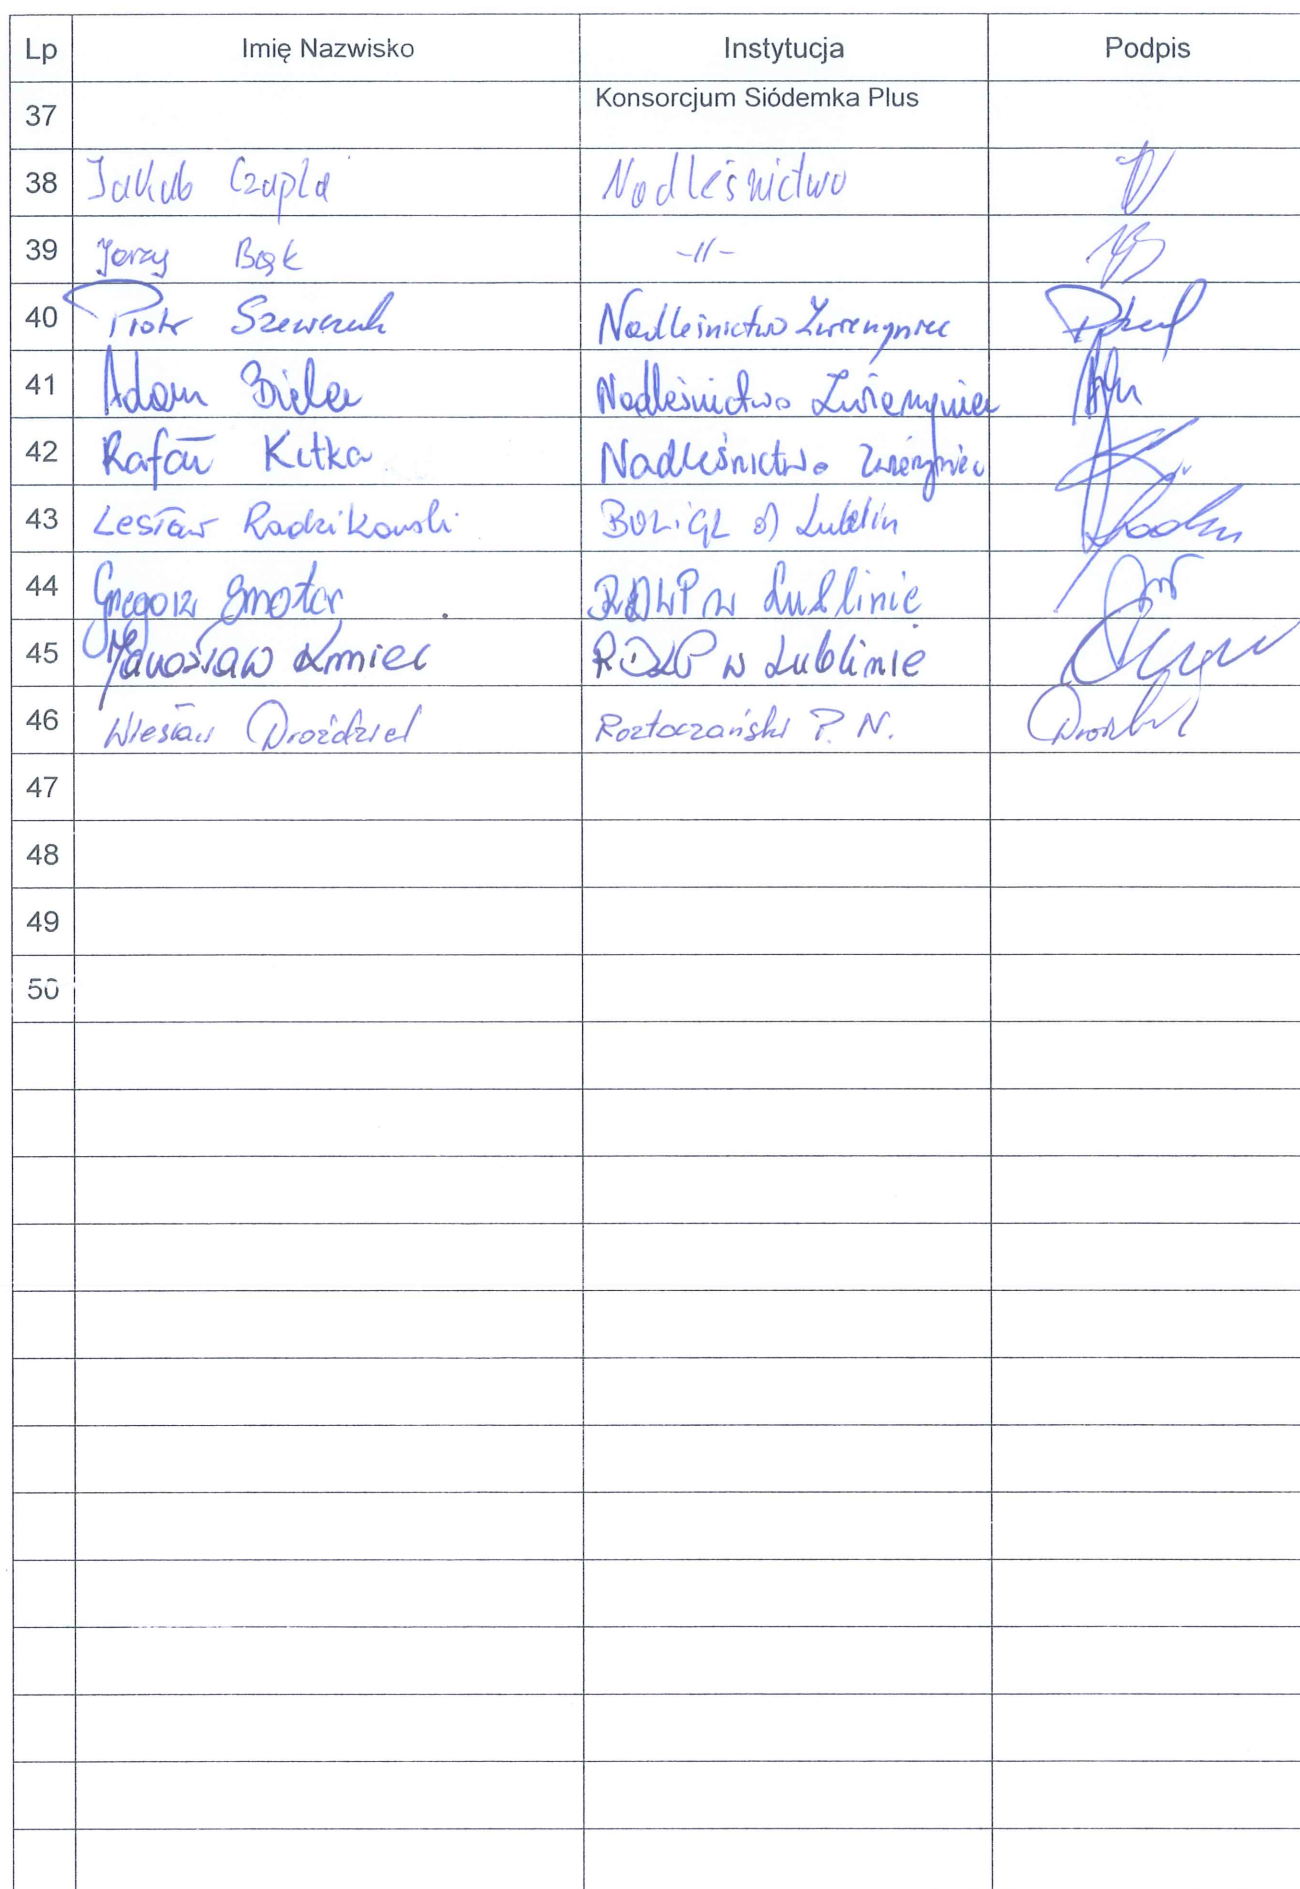 Lp Imię Nazwisko Instytucja Podpis
37 Konsorcjum Siódemka Plus
38 Jakub Czapla Nadleśnictwo
39 Jerzy Bąk -II-
40 Piotr Szewczuk Nadleśnictwo Zwierzyniec
41 Adam Bielec Nadleśnictwo Zwierzyniec
42 Rafał Kitka Nadleśnictwo Zwierzyniec
43 Lesław Radzikowski BULiGL o) Lublin
44 Grzegorz Smotar RDLP w Lublinie
45 Jarosław Kmieć RDLP w Lublinie
46 Wiesław Droździel Roztoczański P. N.
47
48
49
50